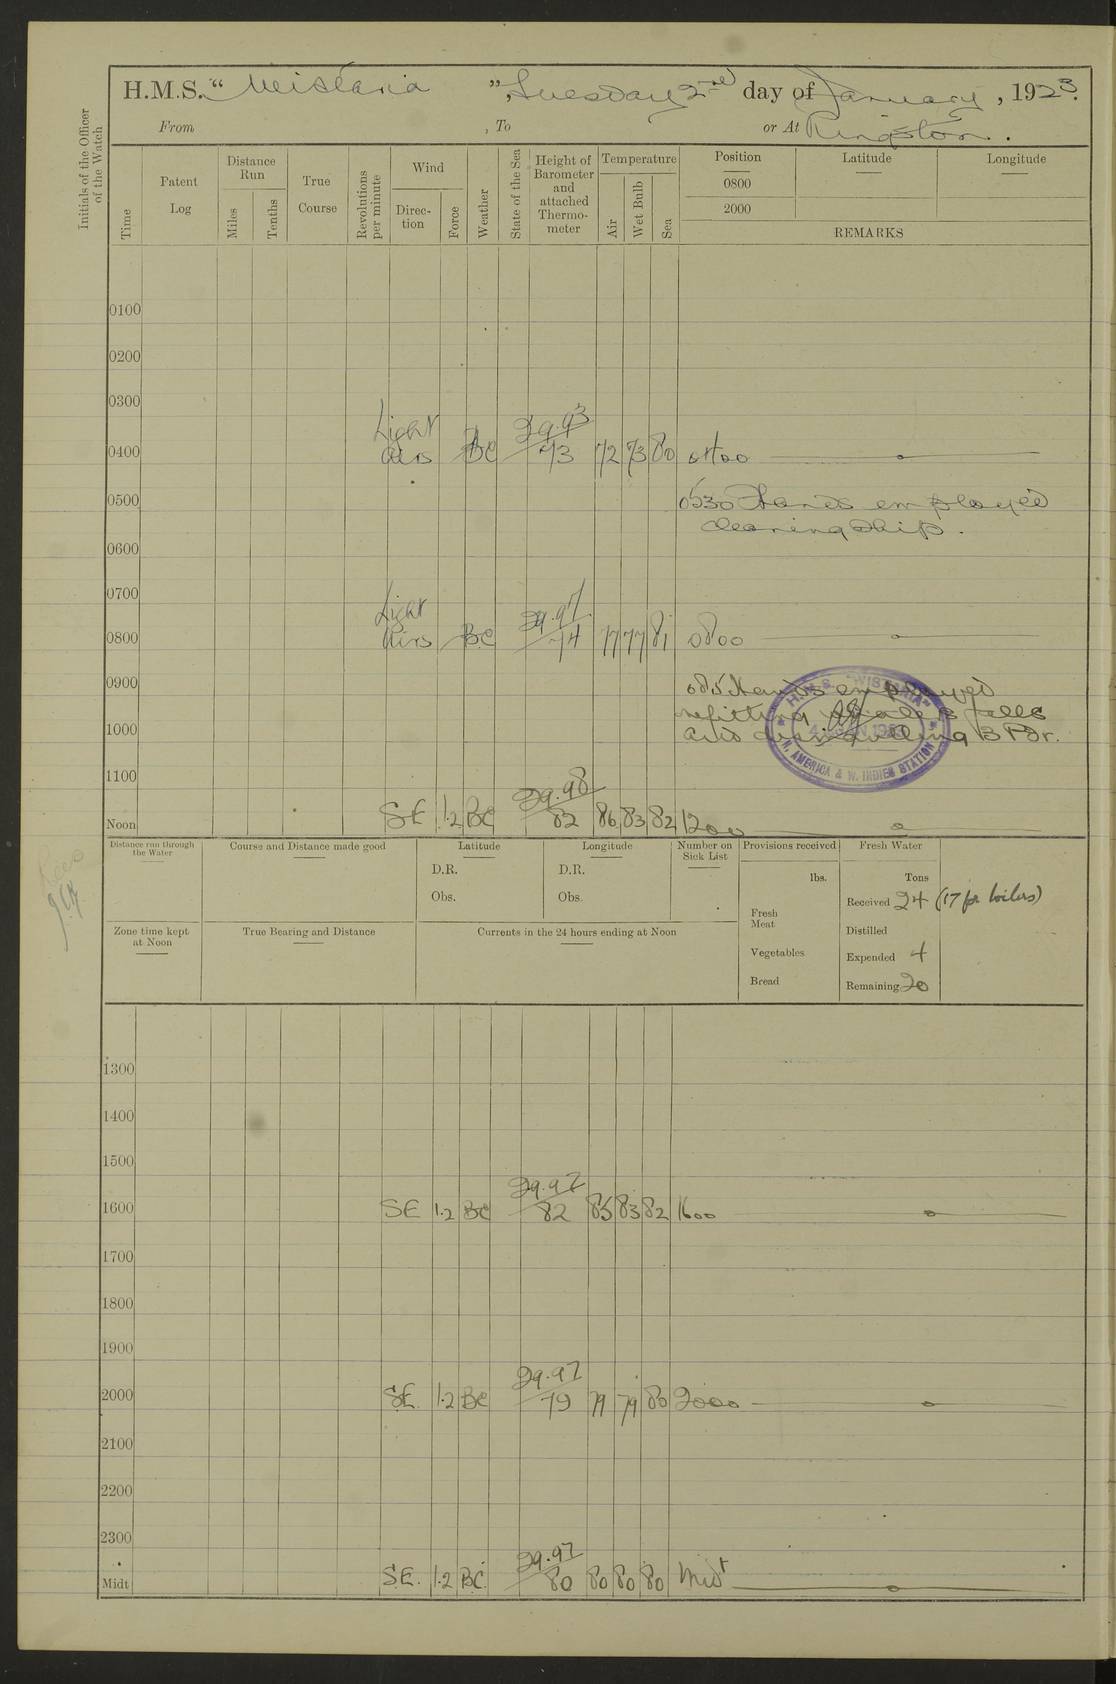 H.M.S. “ Wistaria ”, Tuesday 2nd day of January, 1923.
From , To or At Kingston.
Initials of the Officer of the Watch
Time
Patent Log
Distance Run
Miles
Tenths
True Course
Revolutions per minute
Wind
Direction
Force
Weather
State of the Sea
Height of Barometer and attached Thermometer
Temperature
Air
Wet Bulb
Sea
Position Latitude Longitude
0800
2000
REMARKS
0100
0200
0300
0400 Light airs BC 29.93 73 72 73 80 0400
0500 0530 Hands employed
cleaning ship.
0600
0700
0800 Light airs BC 29.97 74 77 77 81 0800
0900 0815 Hands employed
refitting falls
1000 and B P Dr.
H.M.S. "WISTARIA"
N. AMERICA & W. INDIES STATION
1100
Noon SE 1.2 BC 29.98 82 86 83 82 1200
Distance run through the Water
Course and Distance made good
Latitude
D.R.
Obs.
Longitude
D.R.
Obs.
Number on Sick List
Provisions received
lbs.
Fresh Meat
Vegetables
Bread
Fresh Water
Tons
Received 24 (17 for boilers)
Distilled
Expended 4
Remaining 20
Zone time kept at Noon
True Bearing and Distance
Currents in the 24 hours ending at Noon
1300
1400
1500
1600 SE 1.2 BC 29.97 82 85 83 82 1600
1700
1800
1900
2000 SE. 1.2 BC 29.97 79 79 79 80 2000
2100
2200
2300
Midt SE. 1.2 BC. 29.97 80 80 80 80 Midt